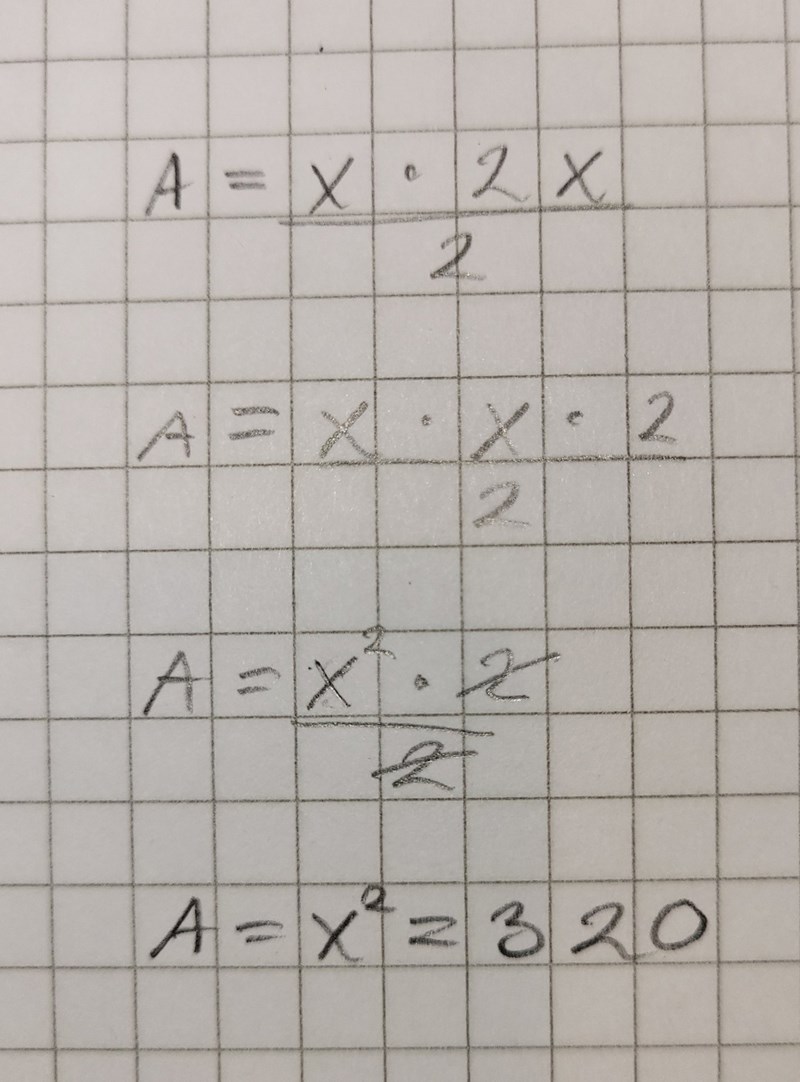 A = x · 2x / 2
A = x · x · 2 / 2
A = x² · 2 / 2
A = x² = 320